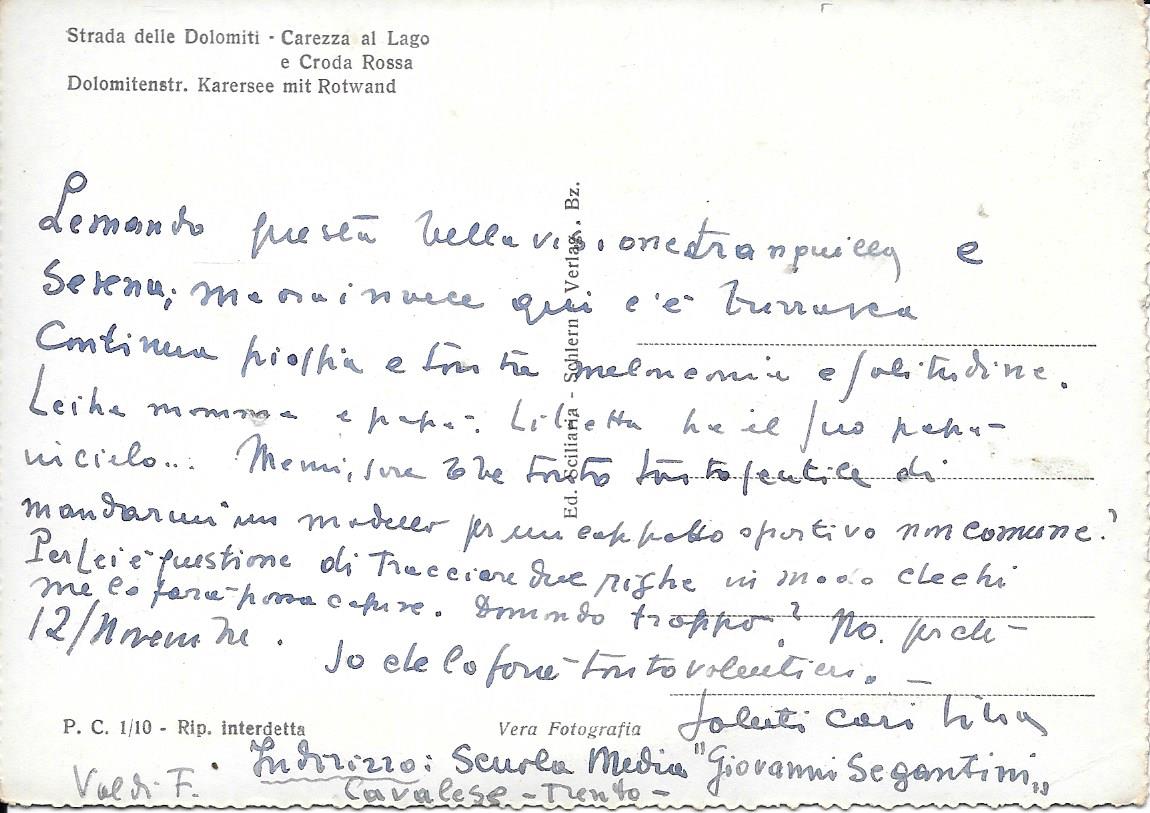 Strada delle Dolomiti - Carezza al Lago
e Croda Rossa
Dolomitenstr. Karersee mit Rotwand
Le mando questa bella visione tranquilla e
Serena; ma ora invece qui c'è burrasca
Continua pioggia e tanta melanconia e solitudine.
Lei ha mamma e papà. Lilietta ha il suo papà
in cielo... Memi, sarebbe tanto tanto gentile di
mandarmi un modello per un cappotto sportivo non comune?
Per Lei è questione di tracciare due righe in modo che chi
me lo farà possa capire. Domando troppo? No. perchè
12/Novembre.
Io che lo farei tanto volentieri. -
Saluti cari
Ed. Sciliaria - Schlern Verlag. Bz.
P. C. 1/10 - Rip. interdetta
Vera Fotografia
Indirizzo: Scuola Media "Giovanni Segantini"
Cavalese - Trento -
Val di F.